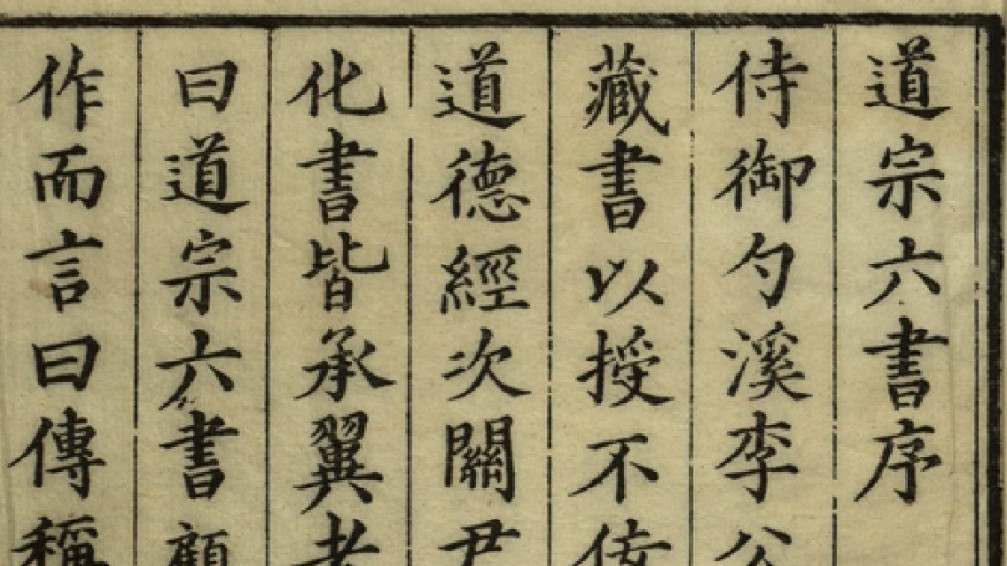 道宗六書序
侍御勺溪李公
藏書以授不佞
道德經次關尹
化書皆承翼老
曰道宗六書顧
作而言曰傳稱